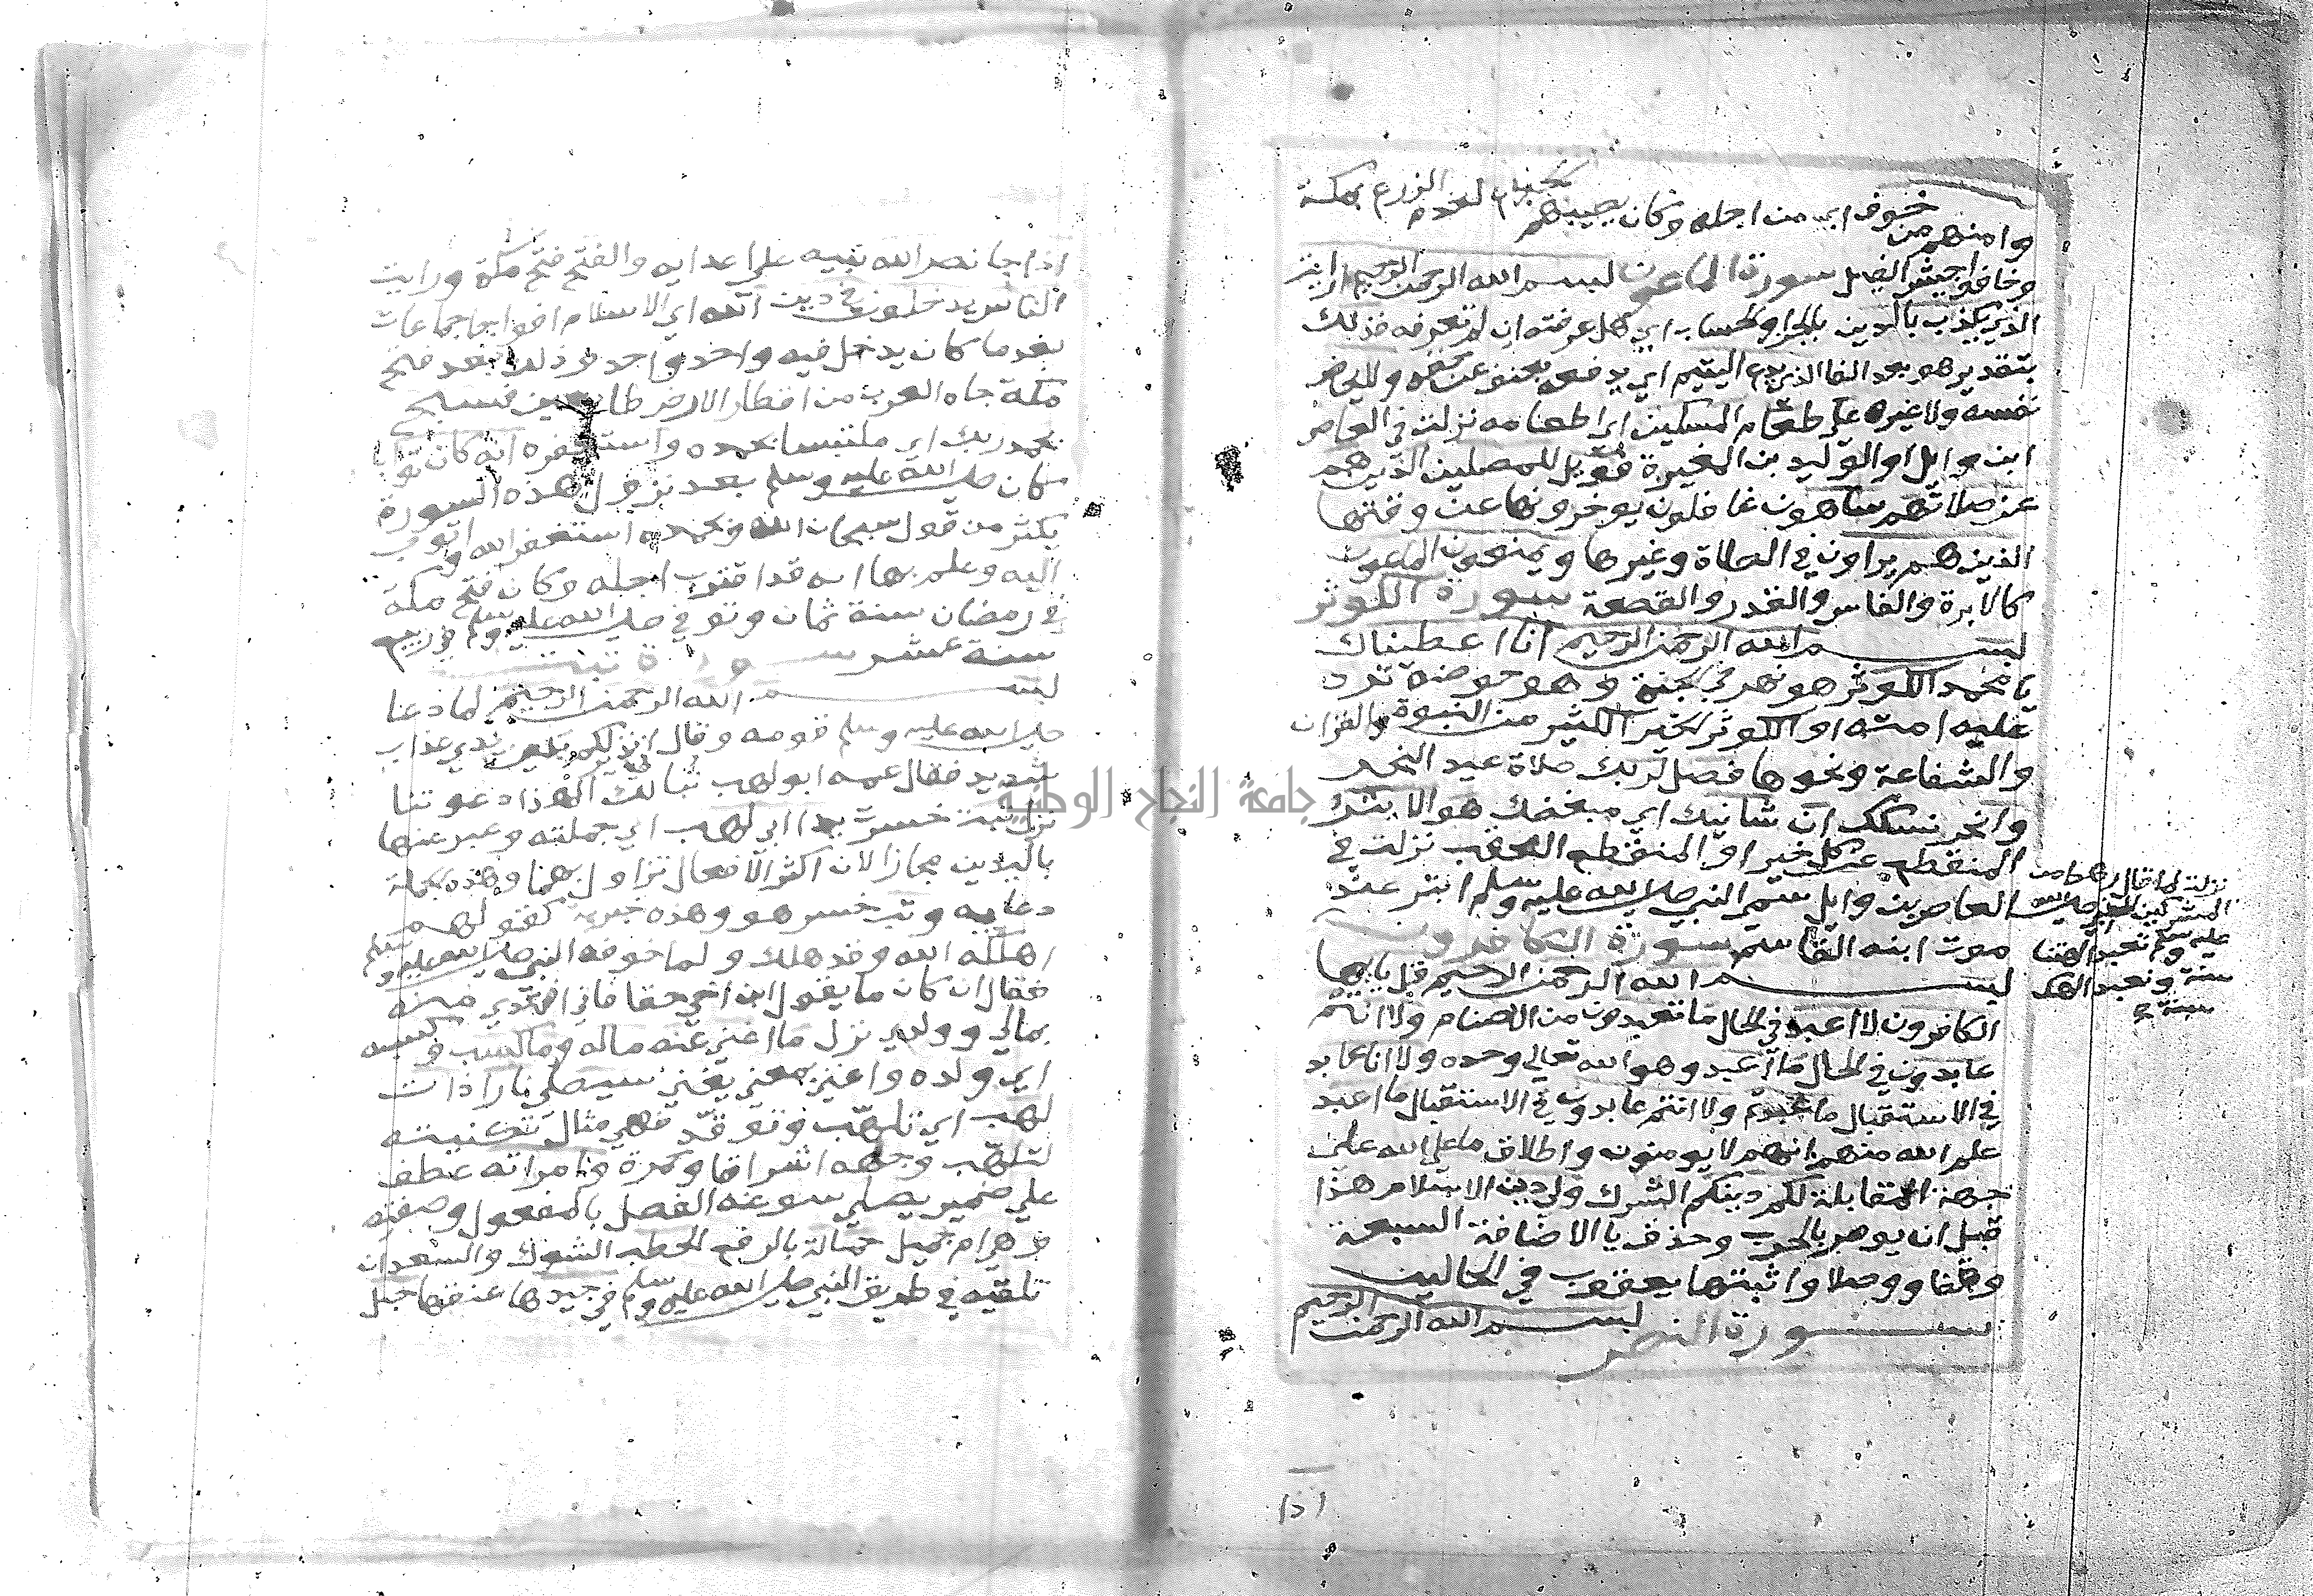 وامنهم من خوف اي من اجله وكان يصيبهم الجوع لعدم الزرع بمكة
وخافوا جيش الفيل سورة الماعون بسم الله الرحمن الرحيم ارايت
الذي يكذب بالدين بالجزا والحساب اي هل عرفته ان لم تعرفه فذلك
بتقدير هو بعد الفا الذي يدع اليتيم اي يدفعه بعنف عن حقه ولا يحض
نفسه ولا غيره على طعام المسكين اي اطعامه نزلت في العاص
ابن وايل او الوليد بن المغيرة فويل للمصلين الذين هم
عن صلاتهم ساهون غافلون يوخرونها عن وقتها
الذين هم يراون في الصلاة وغيرها ويمنعون الماعون
كالابرة والفاس والقدر والقصعة سورة الكوثر
بسم الله الرحمن الرحيم انا اعطيناك
يا محمد الكوثر هو نهر في الجنة وهو حوضه ترد
عليه امته او الكوثر الخير الكثير من النبوة والقران
والشفاعة ونحوها فصل لربك صلاة عيد النحر
وانحر نسكك ان شانيك اي مبغضك هو الابتر
المنقطع عن كل خير او المنقطع العقب نزلت في
العاص بن وايل سمى النبي صلى الله عليه وسلم ابتر عند
موت ابنه القاسم سورة الكافرون
بسم الله الرحمن الرحيم قل يا ايها
الكافرون لا اعبد في الحال ما تعبدون من الاصنام ولا انتم
عابدون في الحال ما اعبد وهو الله تعالي وحده ولا انا عابد
في الاستقبال ما عبدتم ولا انتم عابدون في الاستقبال ما اعبد
علم الله منهم انهم لا يومنون واطلاق ما على الله على
جهة المقابلة لكم دينكم الشرك ولي دين الاسلام هذا
قبل ان يومر بالحرب وحذف يا الاضافة السبعة
وقفا ووصلا واثبتها يعقوب في الحالين
سورة النصر بسم الله الرحمن الرحيم
نزلت لما قال رهط من
المشركين للنبي صلى الله
عليه وسلم تعبد الهتنا
سنة ونعبد الهك
سنة
اذا جا نصر الله نبيه على اعدايه والفتح فتح مكة ورايت
الناس يدخلون في دين الله اي الاسلام افواجا جماعات
بعد ما كان يدخل فيه واحد واحد وذلك بعد فتح
مكة جاه العرب من اقطار الارض طايعين فسبح
بحمد ربك اي ملتبسا بحمده واستغفره انه كان توابا
كان صلى الله عليه وسلم بعد نزول هذه السورة
يكثر من قول سبحان الله وبحمده استغفر الله واتوب
اليه وعلم بها انه قد اقترب اجله وكان فتح مكة
في رمضان سنة ثمان وتوفي صلى الله عليه وسلم في ربيع
سنة عشر سورة تبت
بسم الله الرحمن الرحيم لما دعا
صلى الله عليه وسلم قومه وقال اني نذير لكم بين يدي عذاب
شديد فقال عمه ابو لهب تبا لك الهذا دعوتنا
نزل تبت خسرت يدا ابي لهب اي جملته وعبر عنها
باليدين مجازا لان اكثر الافعال تزاول بهما وهذه الجملة
دعاييه وتب خسر هو وهذه خبرية كقولهم
اهلكه الله وقد هلك ولما خوفه النبي صلى الله عليه وسلم
فقال ان كان ما يقول ابن اخي حقا فاني افتدي منه
بمالي وولدي نزل ما اغني عنه ماله وما كسب وكسبه
اي ولده واغني بمعني يغني سيصلي نارا ذات
لهب اي تلهب وتوقد فهي مثال تكنيته
لتلهب وجهه اشراقا وحمرة وامراته عطف
علي ضمير يصلي سوغه الفصل بالمفعول وصفته
وهي ام جميل حمالة بالرفع الحطب الشوك والسعدان
تلقيه في طريق النبي صلى الله عليه وسلم في جيدها عنقها حبل
جامعة النجاح الوطنية